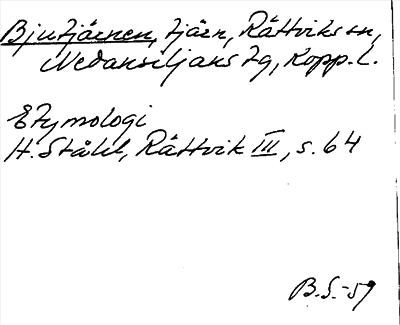 Bjutjärnen, tjärn, Rättviks sn,
Nedansiljans tg, Kopp. l.
Etymologi
H. Ståhl, Rättvik III, s. 64
B. S. -59